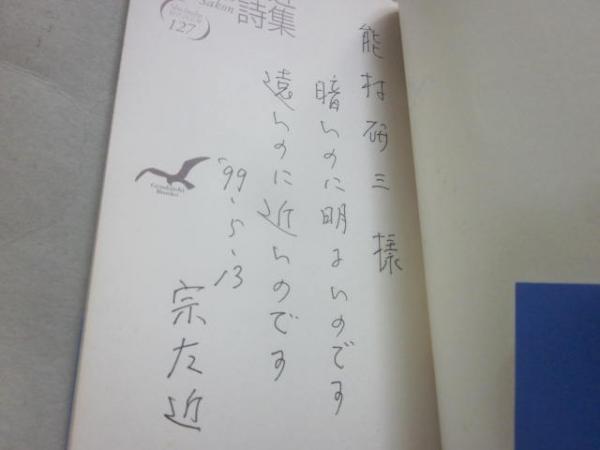 Sakon
詩集
127
能村研三様
暗いのに明るいのです
遠いのに近いのです
'99-5-13
宗左近